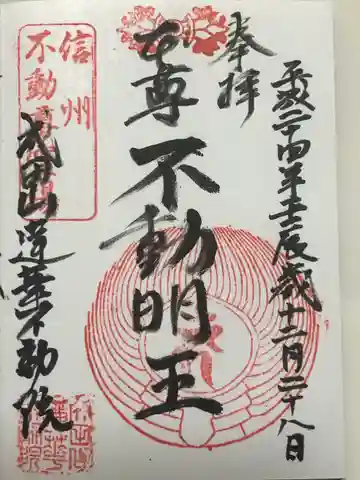 平成二十四年壬辰歳十二月二十八日
奉拝
本尊不動明王
信州
不動尊
成田山蓮華不動院